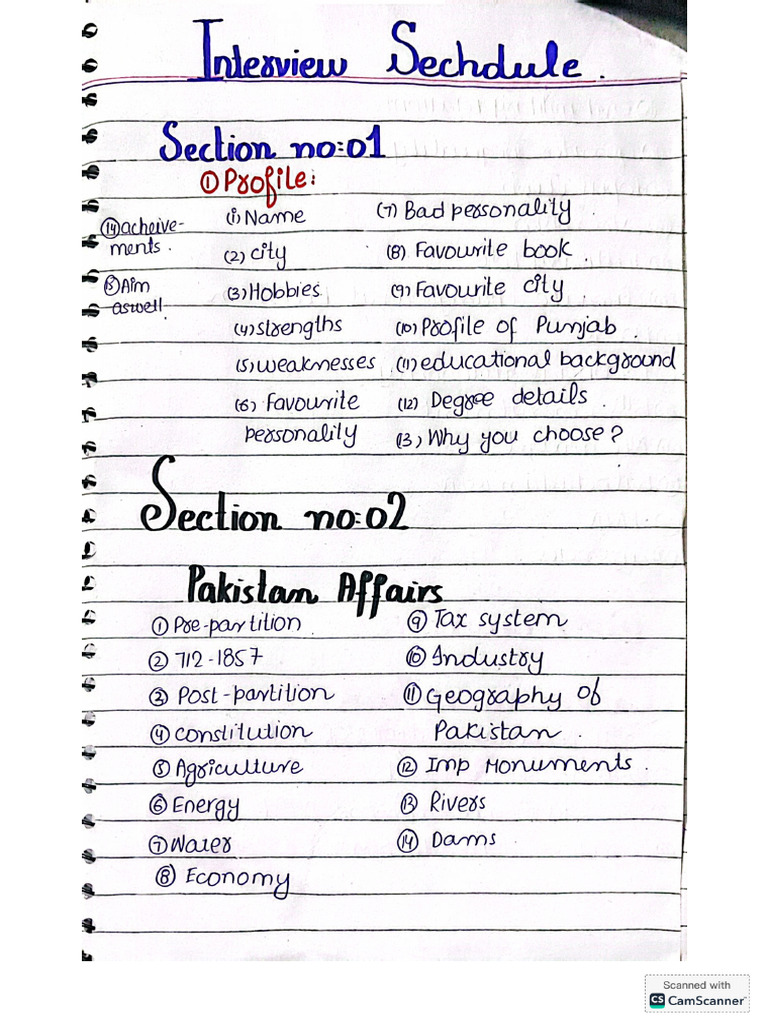 Interview Sechdule.
Section no:01
① Profile:
(1) Name
(2) city
(3) Hobbies
(4) strengths
(5) weaknesses
(6) Favourite
personality
(7) Bad personality.
(8) Favourite book.
(9) Favourite city
(10) Profile of Punjab.
(11) educational background
(12) Degree details.
(13) Why you choose?
⑭ acheive-
ments.
⑮ Aim
aswell.
Section no:02
Pakistan Affairs
① Pre-partition
② 712-1857
③ Post-partition
④ constitution
⑤ Agriculture
⑥ Energy
⑦ Water
⑧ Economy
⑨ Tax system
⑩ Industry
⑪ Geography of
Pakistan.
⑫ Imp Monuments.
⑬ Rivers
⑭ Dams
Scanned with
CS CamScanner